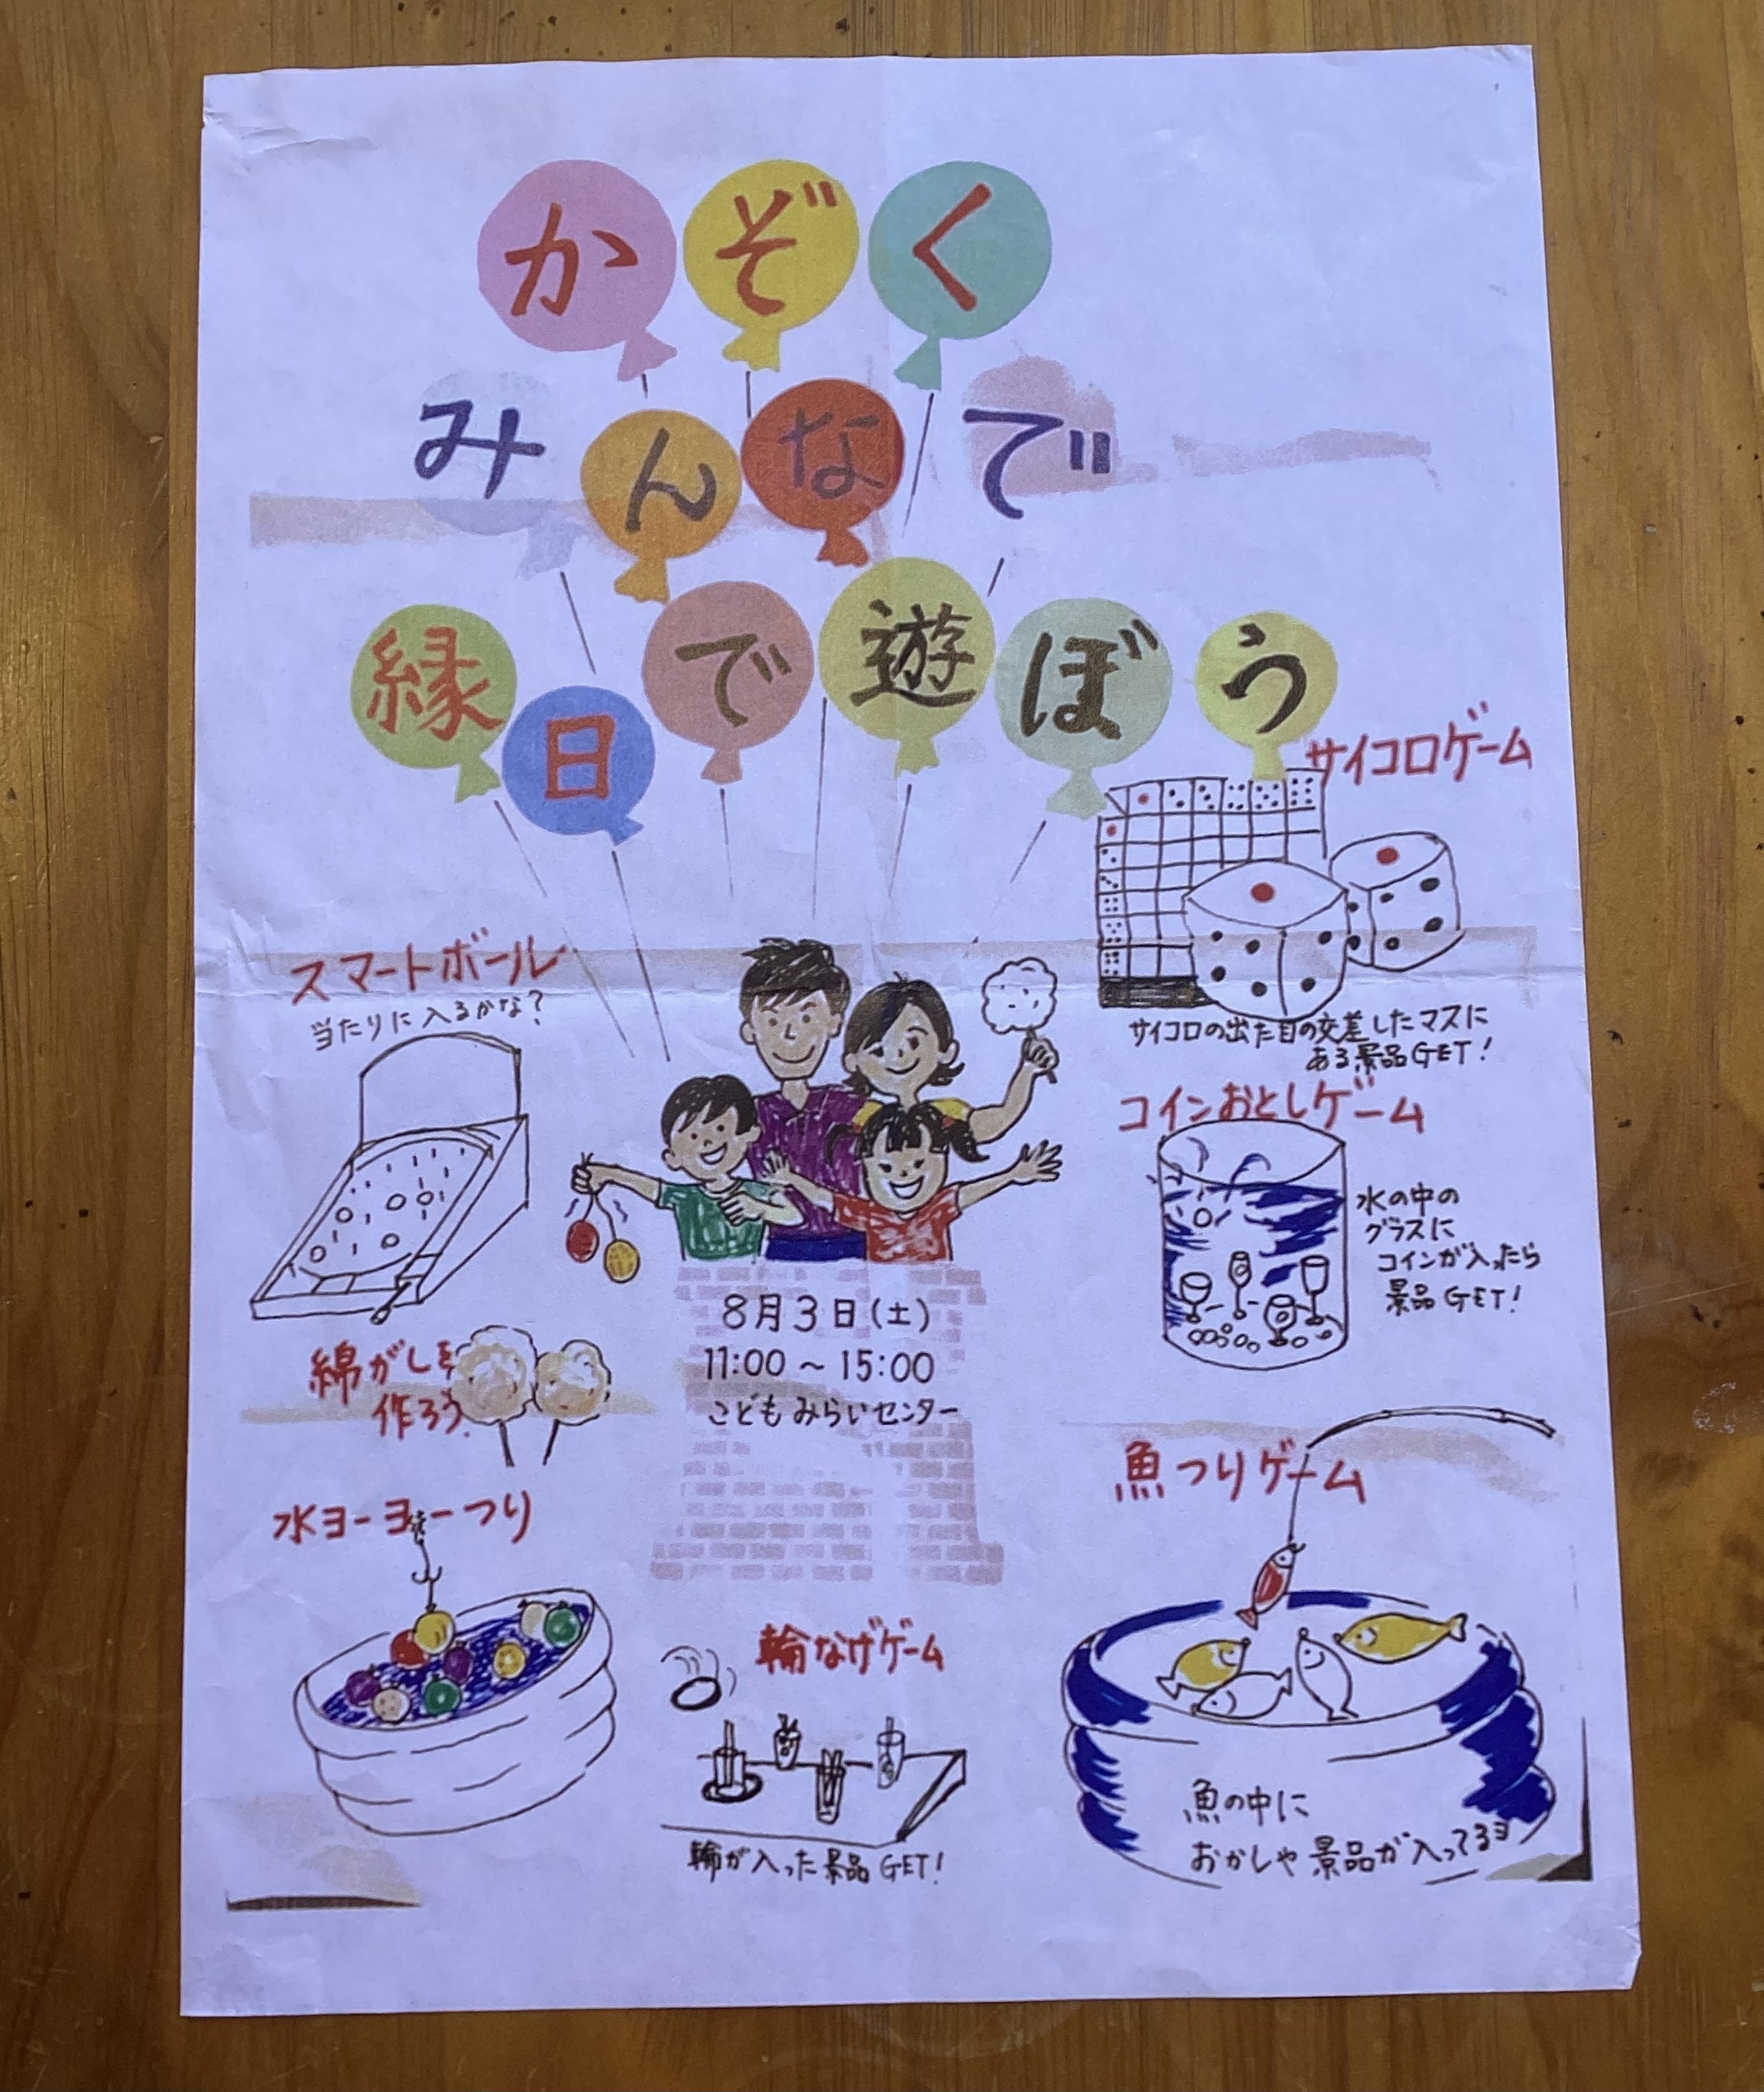 かぞく
みんなで
縁日で遊ぼう
サイコロゲーム
サイコロの出た目の交差したマスに
ある景品GET!
スマートボール
当たりに入るかな?
コインおとしゲーム
水の中の
グラスに
コインが入ったら
景品GET!
8月3日(土)
11:00~15:00
こどもみらいセンター
綿がしを
作ろう
水ヨーヨーつり
魚つりゲーム
魚の中に
おかしや景品が入ってるヨ
輪なげゲーム
輪が入った景品GET!